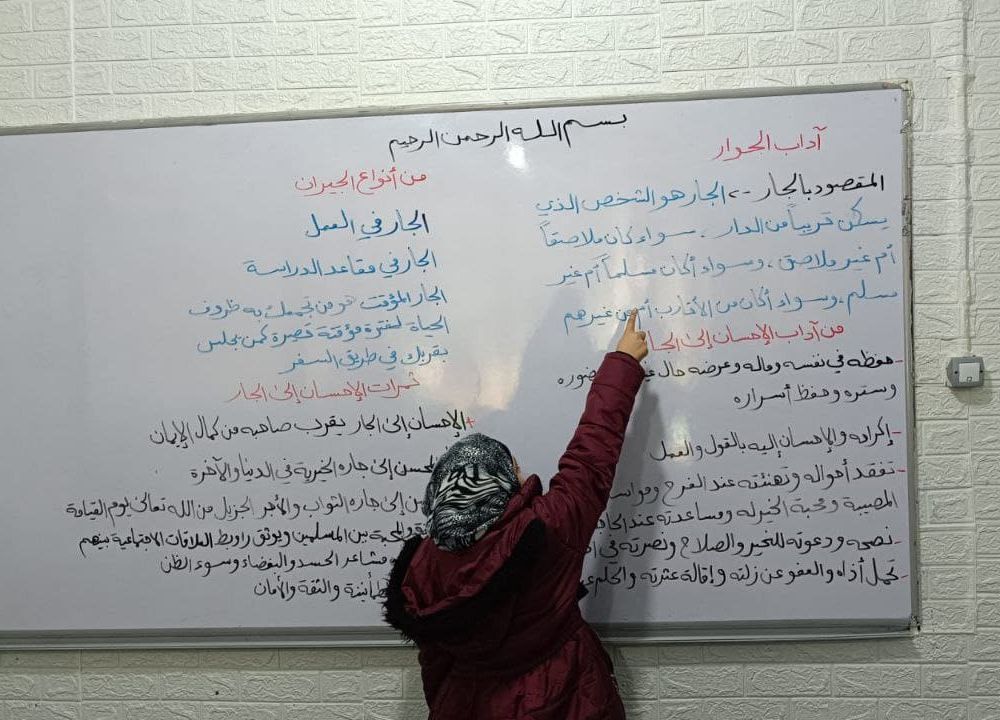 بسم الله الرحمن الرحيم
آداب الجوار
المقصود بالجار -> الجار هو الشخص الذي
يسكن قريباً من الدار ، سواء كان ملاصقاً
أم غير ملاصق ، وسواء أكان مسلماً أم غير
مسلم ، وسواء أكان من الأقارب أم من غيرهم
من آداب الإحسان إلى الجا
- حفظه في نفسه وماله وعرضه حال
وستره وحفظ أسراره
- إكرامه والإحسان إليه بالقول والعمل
- تفقد أحواله وتهنئته عند الفرح
المصيبة ومحبة الخير له ومساعدته عند
- نصحه ودعوته للخير والصلاح ونصرته في
- تحمل أذاه والعفو عن زلته وإقالة عثرته والحلم
من أنواع الجيران
الجار في العمل
الجار في مقاعد الدراسة
الجار المؤقت هو من تجمعك به ظروف
الحياة لفترة مؤقتة قصيرة كمن يجلس
بقربك في طريق السفر
ثمرات الإحسان إلى الجار
+ الإحسان إلى الجار يقرب صاحبه من كمال الإيمان
المحسن إلى جاره الخيرية في الدنيا والآخرة
إلى جاره الثواب والأجر الجزيل من الله تعالى يوم القيامة
والمحبة بين المسلمين ويوثق روابط العلاقات الاجتماعية بينهم
مشاعر الحسد والبغضاء وسوء الظن
والثقة والأمان